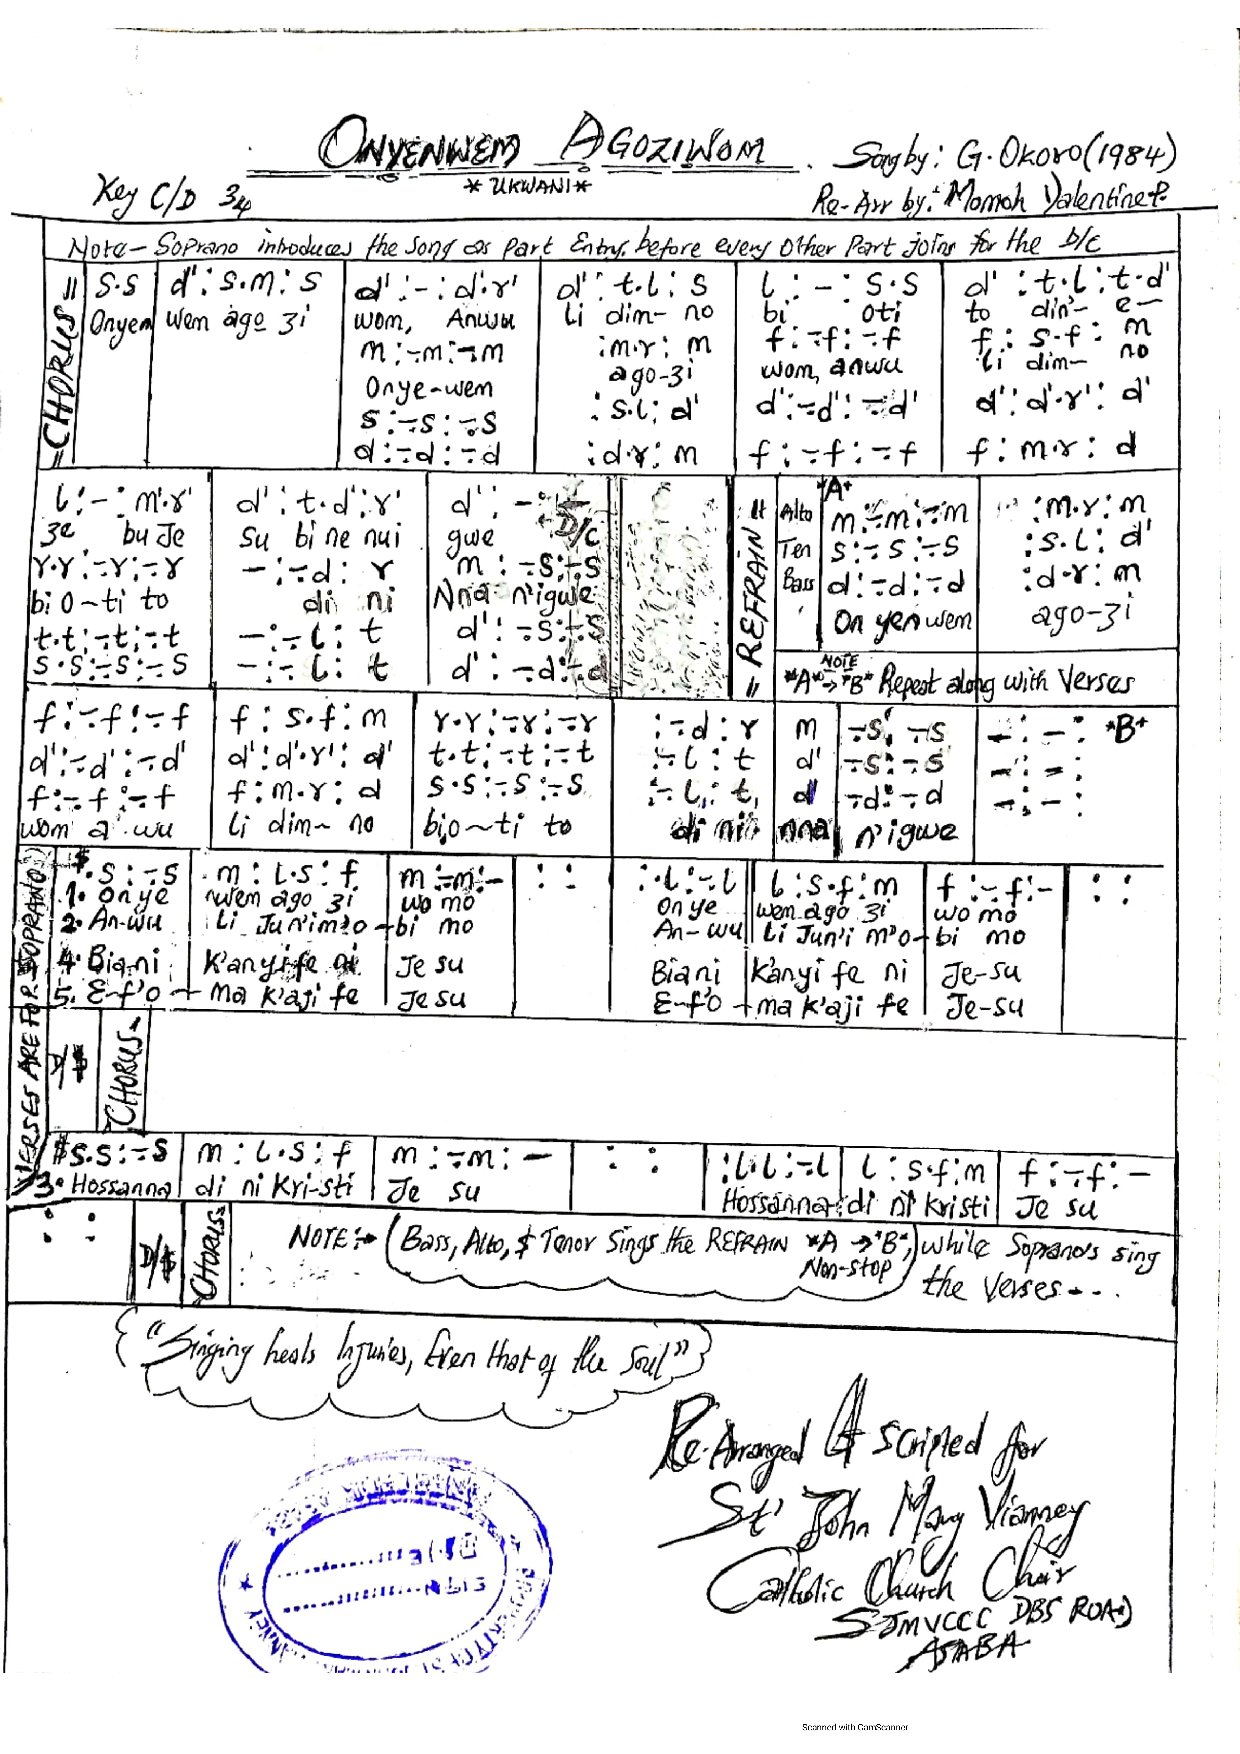 ONYENWEM AGOZIWOM
Song by: G. Okoro (1984)
* UKWANI *
Key C/D 3/4
Re-Arr by: Momoh Valentine P.
Note - Soprano introduces the song as part Entry. before every other Part joins for the D/C
=CHORUS=
s.s | d':s.m:s | d':-:d'.r' | d':t.l:s | l:-:s.s | d':t.l:t.d'
Onyen | wem ago zi | wom, Anwu | li dim- no | bi oti | to din'- e-
m:-m:-m | :m.r:m | f:-f:-f | f:s.f:m
Onye-wem | ago-zi | wom, anwu | li dim- no
s:-s:-s | :s.l:d' | d':-d':-d' | d':d'.r':d'
d:-d:-d | :d.r:m | f:-f:-f | f:m.r:d
l:-:m'.r' | d':t.d':r' | d':-:- D/C
ze bu Je | su bi ne nui | gwe
r.r:-r:-r | -:-d:r | m:-s:-s
bi o-ti to | di ni | Nna n'igwe
t.t:-t:-t | -:-l:t | d':-s:-s
s.s:-s:-s | -:-l:t | d':-d:-d
=REFRAIN=
*A*
Alto | m:-m:-m | :m.r:m
Ten | s:-s:-s | :s.l:d'
Bass | d:-d:-d | :d.r:m
On yen wem | ago-zi
NOTE
*A* → *B* Repeat along with Verses
f:-f:-f | f:s.f:m | r.r:-r:-r | :-d:r | m | -s:-s | -:-: *B*
d':-d':-d' | d':d'.r':d' | t.t:-t:-t | :-l:t | d' | -s:-s | -:-:
f:-f:-f | f:m.r:d | s.s:-s:-s | :-l,:t, | d | -d:-d | -:-:
wom a wu | li dim- no | bio-ti to | di ni | nna | n'igwe
VERSES ARE FOR SOPRANO
$.s:-s | m:l.s:f | m:-m:- | : : | :.l:-l | l:s.f:m | f:-f:- | : :
1. Onye | wem ago zi | wo mo | Onye | wem ago zi | wo mo
2. An-wu | li Jun'im'o-bi mo | An-wu | li Jun'i m'o-bi mo
4. Bia ni | K'anyi fe ni | Je su | Bia ni | K'anyi fe ni | Je-su
5. E-f'o - ma k'aji fe | Je su | E-f'o - ma k'aji fe | Je-su
D/$ | CHORUS
$s.s:-s | m:l.s:f | m:-m:- | : : | :l.l:-l | l:s.f:m | f:-f:-
3. Hossanna | di ni Kri-sti | Je su | Hossanna | di ni Kristi | Je su
: : | D/$ | CHORUS
NOTE:- (Bass, Alto, $ Tenor Sings the REFRAIN *A → *B*, Non-stop) while Soprano's sing the Verses...
{"Singing heals Injuries, Even that of the Soul"}
Re-Arranged & scripted for
St' John Mary Vianney
Catholic Church Choir
SJMVCCC DBS ROAD
ASABA
Scanned with CamScanner